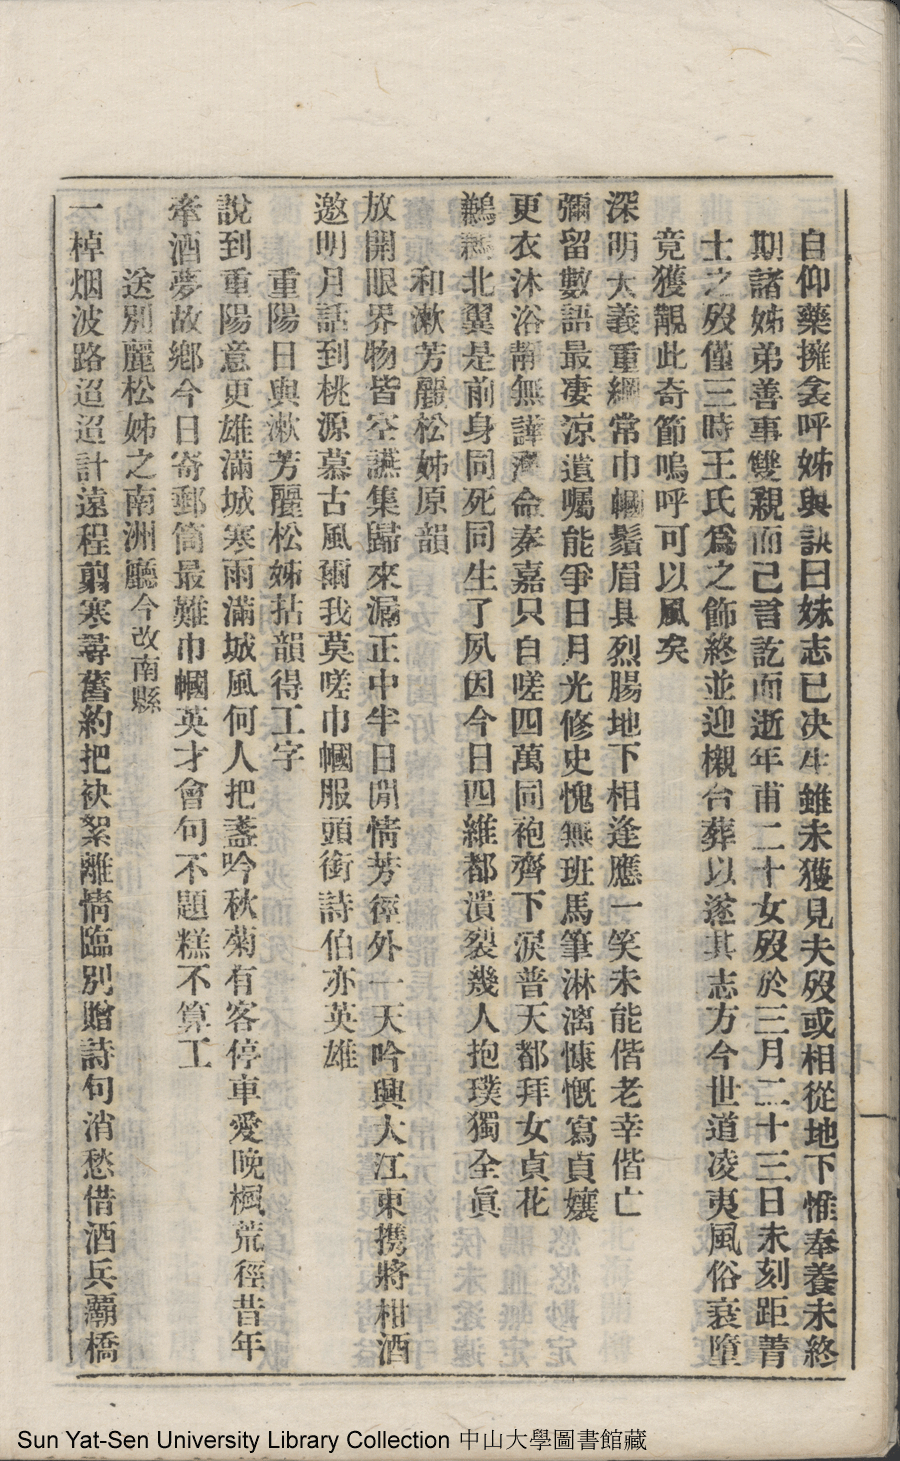 自仰藥擁衾呼姊與訣曰妹志已决生雖未獲見夫歿或相從地下惟奉養未終
期諸姊弟善事雙親而已言訖而逝年甫二十女歿於三月二十三日未刻距菁
士之歿僅三時王氏爲之飾終並迎櫬合葬以遂其志方今世道凌夷風俗衰墮
竟獲覩此奇節嗚呼可以風矣
深明大義重綱常巾幗鬚眉具烈腸地下相逢應一笑未能偕老幸偕亡
彌留數語最凄涼遺囑能爭日月光修史愧無班馬筆淋漓慷慨寫貞孃
更衣沐浴靜無譁濟命奏嘉只自嗟四萬同袍齊下淚普天都拜女貞花
鶼鶼北翼是前身同死同生了夙因今日四維都潰裂幾人抱璞獨全眞
和漱芳麗松姊原韻
放開眼界物皆空讌集歸來漏正中半日閒情芳徑外一天吟興大江東携將柑酒
邀明月話到桃源慕古風爾我莫嗟巾幗服頭銜詩伯亦英雄
重陽日與漱芳麗松姊拈韻得工字
說到重陽意更雄滿城寒雨滿城風何人把盞吟秋菊有客停車愛晚楓荒徑昔年
牽酒夢故鄉今日寄郵筒最難巾幗英才會句不題糕不算工
送別麗松姊之南洲廳今改南縣
一棹烟波路迢迢計遠程剪寒尋舊約把袂絮離情臨別贈詩句消愁借酒兵灞橋
Sun Yat-Sen University Library Collection 中山大學圖書館藏